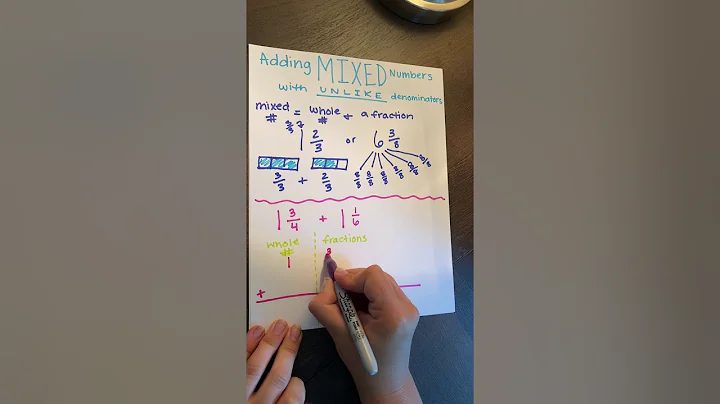 Adding MIXED Numbers
with UNLIKE denominators
mixed # = whole # & a fraction
1 2/3 or 6 3/8
3/3 + 2/3
8/8 8/8 8/8 8/8 8/8 8/8
1 3/4 + 1 1/6
whole # fractions
1 3
+
Sharpie